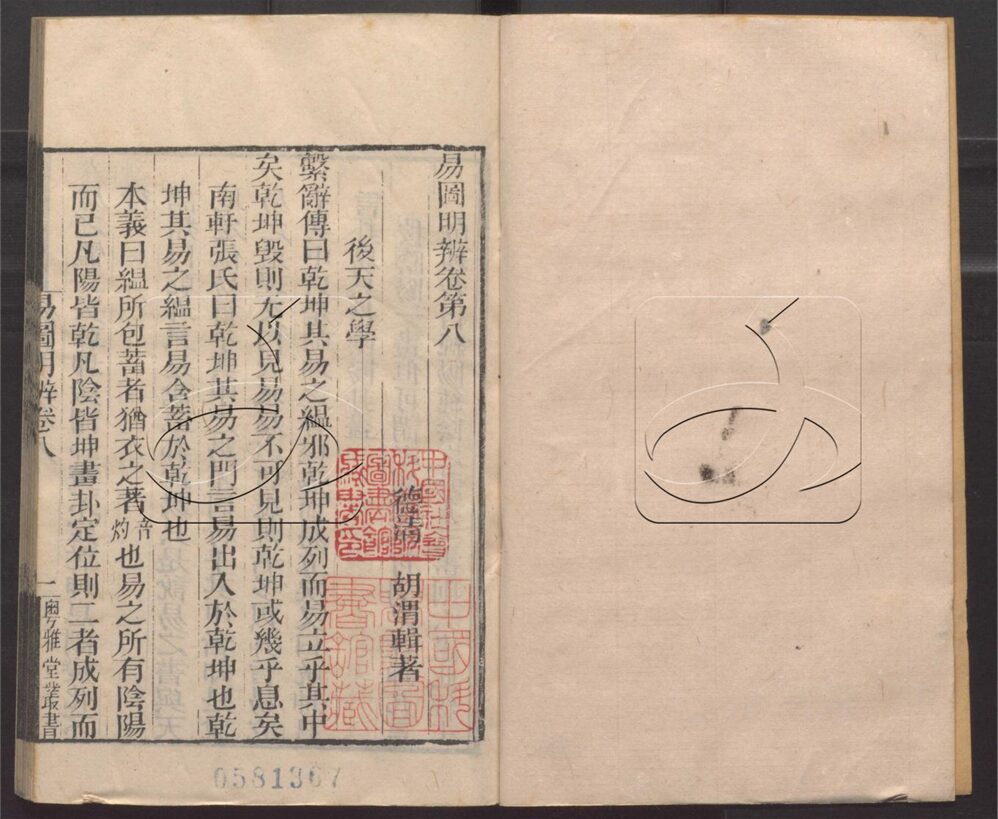 易圖明辨卷第八
德清 胡渭輯著
後天之學
繫辭傳曰乾坤其易之縕邪乾坤成列而易立乎其中
矣乾坤毀則无以見易易不可見則乾坤或幾乎息矣
南軒張氏曰乾坤其易之門言易出入於乾坤也乾
坤其易之縕言易含蓄於乾坤也
本義曰縕所包蓄者猶衣之著音灼也易之所有陰陽
而已凡陽皆乾凡陰皆坤畫卦定位則二者成列而
易圖明辨卷八 一 粵雅堂叢書
0581367